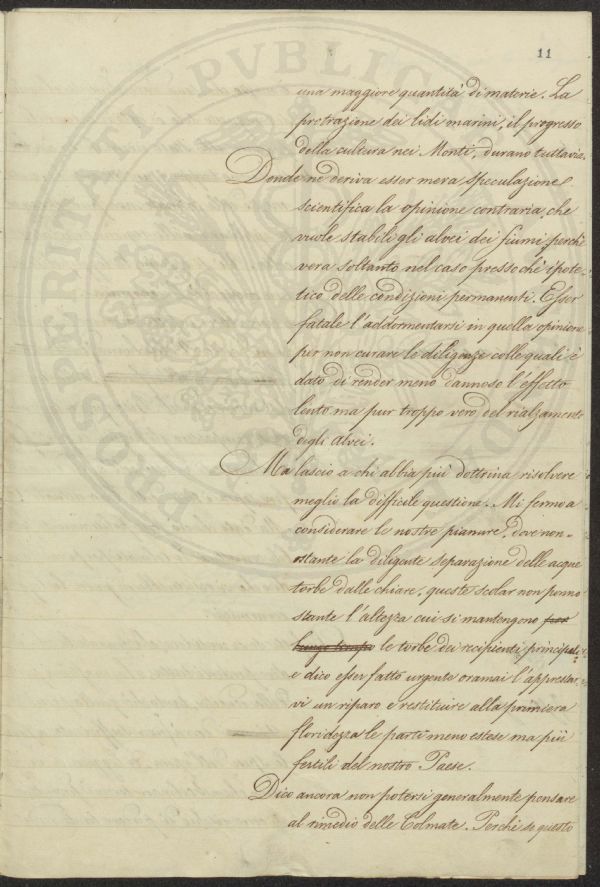 11
una maggiore quantità di materie. La
protrazione dei lidi marini, il progresso
della cultura nei Monti, durano tuttavia.
Donde ne deriva esser mera speculazione
scientifica la opinione contraria, che
vuole stabili gli alvei dei fiumi perchè
vera soltanto nel caso pressochè ipote-
tico delle condizioni permanenti. Esser
fatale l'addormentarsi in quella opinione
per non curare le diligenze colle quali è
dato di render meno dannoso l'effetto
lento ma pur troppo vero del rialzamento
degli alvei.
Ma lascio a chi abbia più dottrina risolvere
meglio la difficile questione. Mi fermo a
considerare le nostre pianure, dove non-
ostante la diligente separazione delle acque
torbe dalle chiare, queste scolar non ponno
stante l'altezza cui si mantengono per
lungo tempo le torbe dei recipienti principali:
e dico esser fatto urgente oramai l'apprestar-
vi un riparo e restituire alla primiera
floridezza le parti meno estese ma più
fertili del nostro Paese.
Dico ancora non potersi generalmente pensare
al rimedio delle Colmate. Perchè se questo
PROSPERITATI PVBLICAE